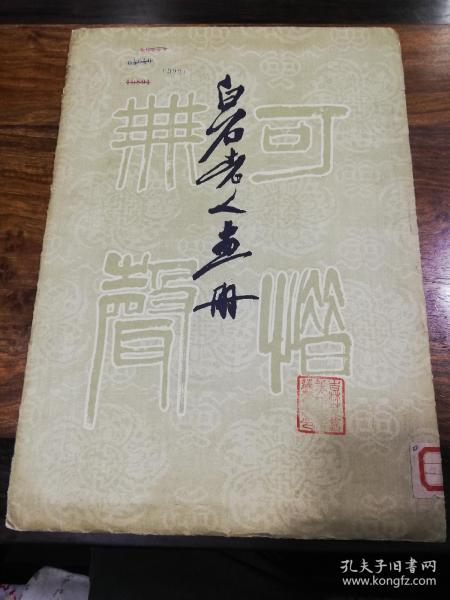 白石老人画册
可惜
無聲
孔夫子旧书网
www.kongfz.com